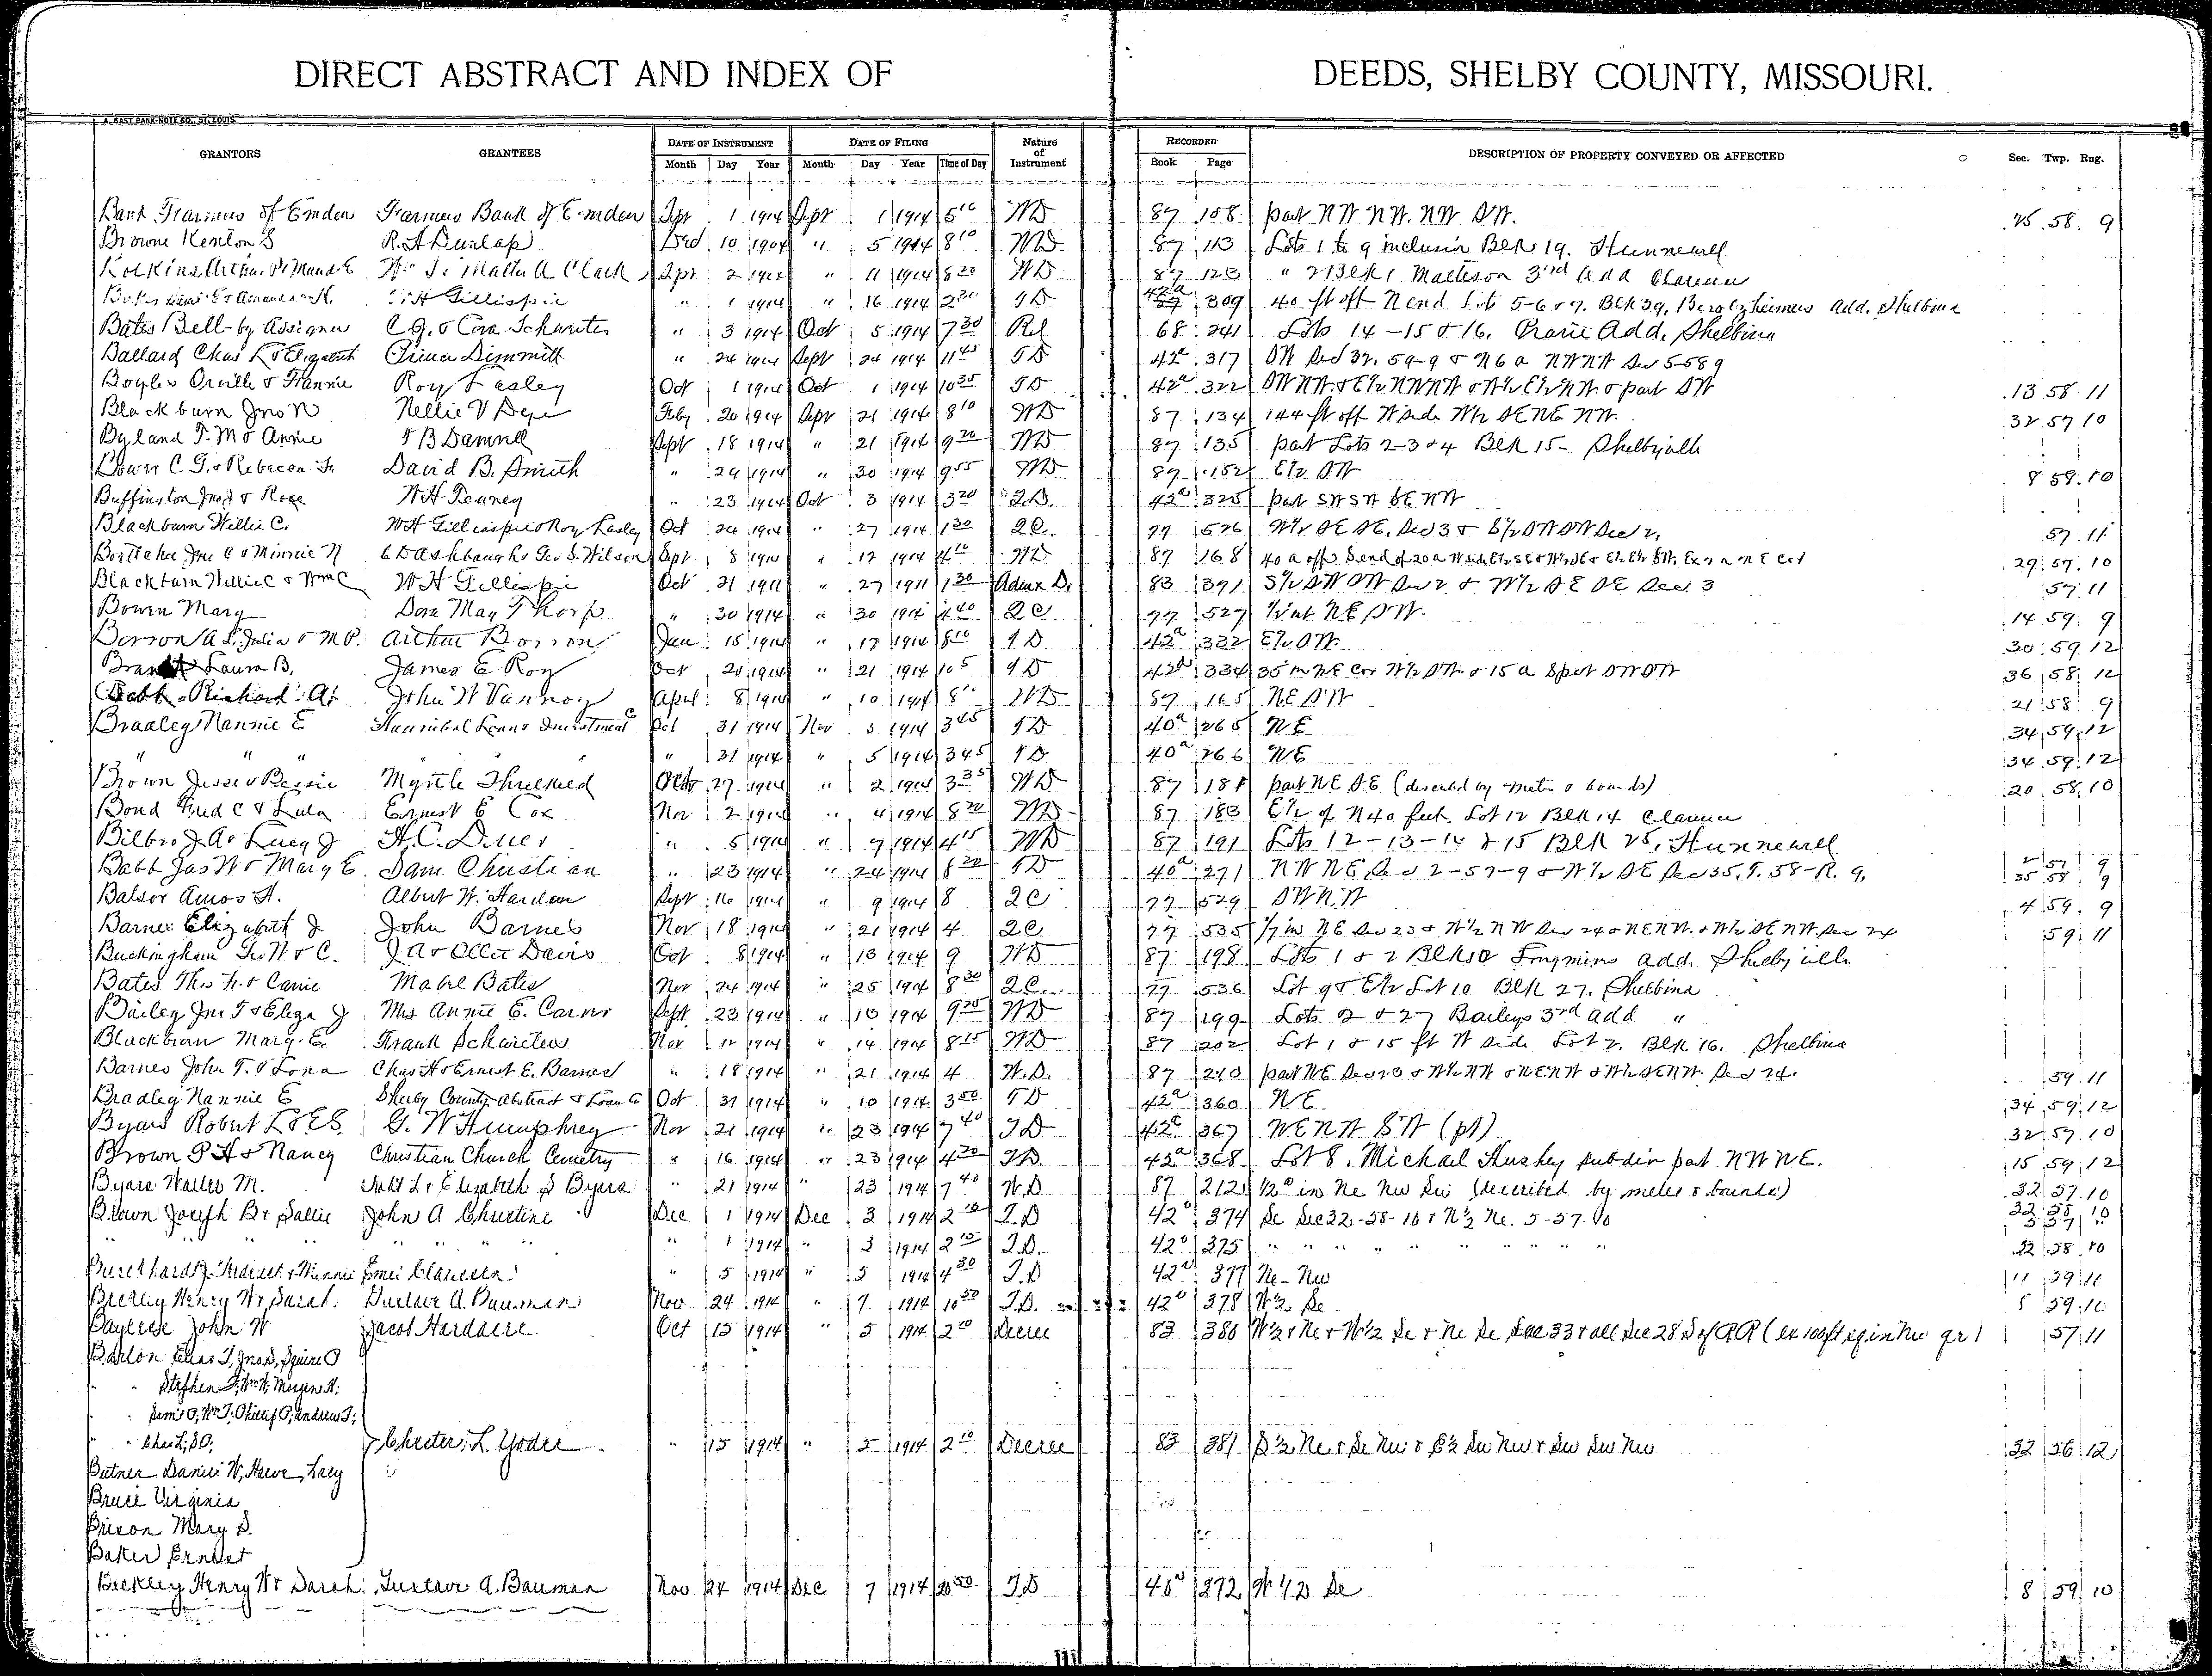 DIRECT ABSTRACT AND INDEX OF DEEDS, SHELBY COUNTY, MISSOURI.
A. GAST BANK-NOTE CO., ST. LOUIS
GRANTORS GRANTEES DATE OF INSTRUMENT DATE OF FILING Nature of Instrument RECORDED DESCRIPTION OF PROPERTY CONVEYED OR AFFECTED Sec. Twp. Rng.
Month Day Year Month Day Year Time of Day Book Page
Bank Farmers of Emden Farmers Bank of Emden Sept 1 1914 Sept 1 1914 5 10 WD 87 108 part NW NW. NW SW. 25 58 9
Browne Kenton S R. A Dunlap 10 1904 " 5 1914 8 10 WD 87 113 Lots 1 to 9 inclusive Blk 19. Hunnewell
Mattie A Clark Sept 2 " 11 1914 8 20 WD 87 123 " 2 Blk 1 Matteson 3rd add Clarence
Gillispie " 1 1914 " 16 1914 2 30 TD 42a 309 40 ft off N end Lots 5-6 & 7. Blk 39, Berolzheimers add. Shelbina
Bates Bell - by Assignee C. J. & Cora Schwieter " 3 1914 Oct 5 1914 7 30 Rel 68 241 Lots 14-15 & 16. Prarie Add, Shelbina
Ballard Chas L & Elizabeth Prince Dimmitt " 24 1914 Sept 24 1914 11 45 TD 42a 317 SW Sec 32. 59-9 & N 6 a NWNW Sec 5-58 9
Boyles Orville & Fannie Roy Lasley Oct 1 1914 Oct 1 1914 10 35 TD 42a 322 SWNW. & E½NWNW & W½E½NW. & part SW 13 58 11
Blackburn Jno N Nellie V Dye Feby 20 1914 Sept 21 1914 8 10 WD 87 134 144 ft off W side W½ SE NE NW. 32 57 10
Byland T. M & Annie T B Damrell Sept 18 1914 " 21 1914 9 20 WD 87 135 part Lots 2-3 & 4 Blk 15 - Shelbyville
Bower C. G. & Rebecca David B. Smith " 24 1914 " 30 1914 9 55 WD 87 152 E½ SW 8 59 10
Buffington Jno & Rose W H Feaney " 23 1914 Oct 3 1914 3 20 42a 325 part SW SW SE NW
Blackburn Willie C. W H Gillispie & Roy Lasley Oct 24 1914 " 27 1914 1 30 QC. 77 526 W½ SE SE. Sec 3 & S½ SW SW Sec 2, 57 11
Boettcher Jno C & Minnie N C D Ashbaugh & Geo S. Wilson Sept 8 " 17 1914 4 10 WD 87 168 29 57 10
Blackburn Willie C & Wm C W H Gillispie Oct 21 1911 " 27 1911 1 30 Admx D. 83 391 S½ SW SW Sec 2 & W½ SE SE Sec. 3 57 11
Bowen Mary Dora May Thorp " 30 1914 " 30 1914 4 40 QC 77 527 NE SW. 14 59 9
Julia & M P. Arthur Jan 15 1914 " 17 1914 8 10 TD 42a 332 E½ SW. 30 59 12
Laura B. James E. Roy Oct 20 1914 " 21 1914 10 5 TD 42a 334 35 in NE Cor W½ SW. & 15 a S part SWSW 36 58 12
Babb Richard A. John W Vannoy April 8 1914 " 10 1914 8 WD 87 165 NE SW 21 58 9
Bradley Nannie E Hannibal Loan & Investment Co Oct 31 1914 Nov 5 1914 3 45 TD 40a 265 NE 34 59 12
" " " " 31 1914 " 5 1914 3 45 TD 40a 266 NE 34 59 12
Brown Jesse & Bessie Myrtle Threlkeld Oct 27 1914 " 2 1914 3 35 WD 87 181 part NE SE (described by metes & bounds) 20 58 10
Bond Fred C & Lula Ernest E Cox Nov 2 1914 " 4 1914 8 20 WD 87 183 E½ of N 40 feet Lot 12 Blk 14 Clarence
Bilbro J. A & Lucy J H. C. Duer " 5 1914 " 7 1914 4 15 WD 87 191 Lots 12-13-14 & 15 Blk 25, Hunnewell
Babb Jas W & Mary E. Sam Christian " 23 1914 " 24 1914 8 20 TD 40a 271 NW NE Sec 2-57-9 & W½ SE Sec 35. T. 58-R. 9. 2 57 9
35 58 9
Balsor Amos H. Albert W. Harden Sept 16 1914 " 9 1914 8 QC 77 529 SWNW 4 59 9
Barnes Elizabeth J John Barnes Nov 18 1914 " 21 1914 4 QC 77 535 1/7 in NE Sec 23 & W½ NW Sec 24 & NENW. & W½ SE NW. Sec 24 59 11
Buckingham Geo W & C. J A & Ollie Davis Oct 8 1914 " 13 1914 9 WD 87 198 Lots 1 & 2 Blk 10 add. Shelbyville
Bates Thos & Carrie Mable Bates Nov 24 1914 " 25 1914 8 30 QC. 77 536 Lot 9 & E½ Lot 10 Blk 27. Shelbina
Bailey Jno T & Eliza J Mrs Annie E. Carns Sept 23 1914 " 13 1914 9 25 WD 87 199 Lots 2 & 27 Baileys 3rd add "
Blackburn Mary E. Frank Schwieters Nov 12 1914 " 14 1914 8 15 WD 87 202 Lot 1 & 15 ft W side Lot 2. Blk 16. Shelbina
Barnes John T. & Lona Chas H & Ernest E. Barnes " 18 1914 " 21 1914 4 W.D. 87 210 part NE Sec 23 & W½NW & NENW & W½ SENW. Sec 24. 59 11
Bradley Nannie E Shelby County Abstract & Loan Co Oct 31 1914 " 10 1914 3 50 TD 42a 360 NE. 34 59 12
Byars Robert L & E S. G. W Humphrey Nov 21 1914 " 23 1914 7 40 TD 42a 367 NENW SW (pt) 32 57 10
Brown P H & Nancy Christian Church Cemetry " 16 1914 " 23 1914 4 30 TD. 42a 368 Lot 8. Michael Huskey subdiv part NW NE. 15 59 12
Byars Walter M. L & Elizabeth S Byars " 21 1914 " 23 1914 7 40 W.D 87 212 ½ a in Ne Nw Sw (described by metes & bounds) 32 57 10
Brown Joseph B & Sallie John A Christine Dec 1 1914 Dec 3 1914 2 15 T.D 42a 374 Se Sec 32-58-10 & N½ Ne. 5-57-10 32 58 10
5 57 "
" " " " " " " " " 1 1914 " 3 1914 2 15 T.D. 42a 375 " " " " " " " " 32 58 10
Burckhardt Fredrick & Minnie Emei Clausen " 5 1914 " 5 1914 4 30 T.D 42a 377 Ne - Nw 11 59 11
Henry W & Sarah. Gustave A. Bauman Nov 24 1914 " 7 1914 10 50 T.D. 42a 378 W½ Se 8 59 10
John W Jacob Hardaire Oct 15 1914 " 5 1914 2 10 Decree 83 380 W½ & Ne & W½ Se & Ne Se Sec. 33 & all Sec 28 S of RR (ex 100ft sq in Nw qr) 57 11
Barton Elias T, Jno. S, Squire O
" " Stephen F, Wm H, Morgen H;
" " Sam'l O, Wm T; Phillip O; Andrew T;
" " Chas L; S O; Chester L. Yoder " 15 1914 " 5 1914 2 10 Decree 83 381 S½ Ne & Se Nw & E½ Sw Nw & Sw Sw Nw 32 56 12
Butner Daniel W, Harve, Lacy
Bruce Virginia
Brison Mary S.
Baker Ernest
Beckley Henry W & Sarah. Gustave A. Bauman Nov 24 1914 Dec 7 1914 10 50 T.D 40a 272 W 1/2 Se 8 59 10